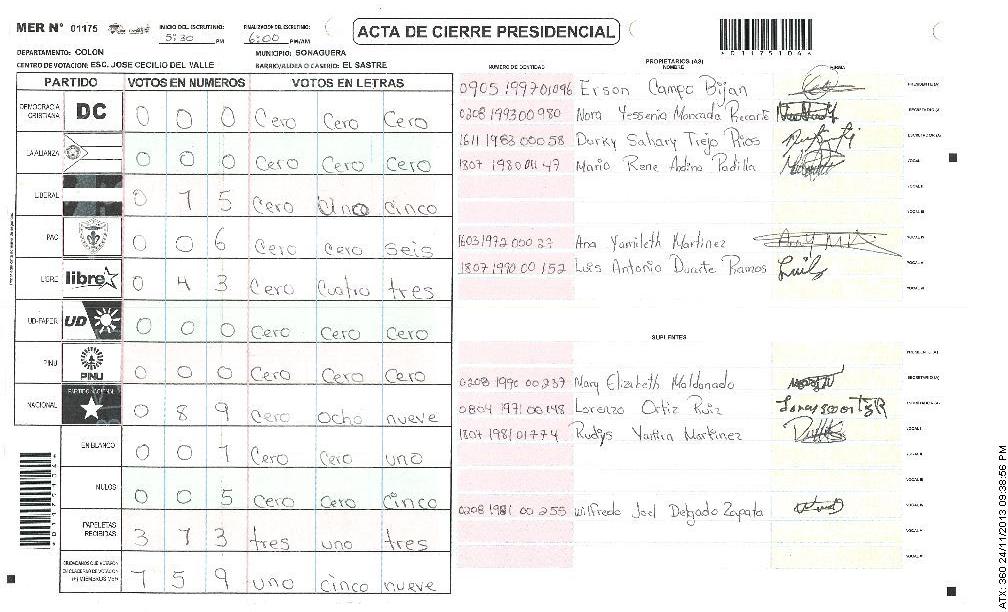 MER N° 01175
INICIO DEL ESCRUTINIO: 5:30 PM
FINALIZACION DEL ESCRUTINIO: 6:00 PM/AM
ACTA DE CIERRE PRESIDENCIAL
DEPARTAMENTO: COLON
MUNICIPIO: SONAGUERA
CENTRO DE VOTACION: ESC. JOSE CECILIO DEL VALLE
BARRIO/ALDEA O CASERIO: EL SASTRE
PARTIDO VOTOS EN NUMEROS VOTOS EN LETRAS
DEMOCRACIA CRISTIANA DC 0 0 0 Cero Cero Cero
LA ALIANZA 0 0 0 Cero Cero Cero
LIBERAL 0 1 5 Cero Uno cinco
PAC 0 0 6 Cero Cero seis
LIBRE libre 0 4 3 Cero Cuatro tres
UD-FAPER UD 0 0 0 Cero Cero Cero
PINU PINU 0 0 0 Cero Cero Cero
NACIONAL PARTIDO NACIONAL 0 8 9 Cero Ocho nueve
EN BLANCO 0 0 1 Cero Cero uno
NULOS 0 0 5 Cero Cero Cinco
PAPELETAS RECIBIDAS 3 1 3 tres uno tres
1 5 9 uno cinco nueve
PROPIETARIOS (AS)
NUMERO DE IDENTIDAD NOMBRE FIRMA
0905 1997 01096 Erson Campo Bijan PRESIDENTE (A)
0208 1993 00980 Nora Yessenia Moncada Recarte SECRETARIO (A)
1611 1983 00058 Durky Sahary Trejo Rios ESCRUTADOR (A)
1807 1980 Mario Rene Padilla VOCAL I
VOCAL II
VOCAL III
1603 1972 000 Ana Yamileth Martinez VOCAL IV
1807 1990 00 152 Luis Antonio Duarte Ramos VOCAL V
VOCAL VI
SUPLENTES
PRESIDENTE (A)
0208 1990 00 237 Mary Elizabeth Maldonado SECRETARIO (A)
0804 1971 00148 Lorenzo Ortiz Ruiz ESCRUTADOR (A)
1807 1981 01774 Rudys Martinez VOCAL I
VOCAL II
VOCAL III
0208 1981 00 255 Wilfredo Joel Delgado Zapata VOCAL IV
VOCAL V
VOCAL VI
ATX: 360 24/11/2013 09:38:56 PM